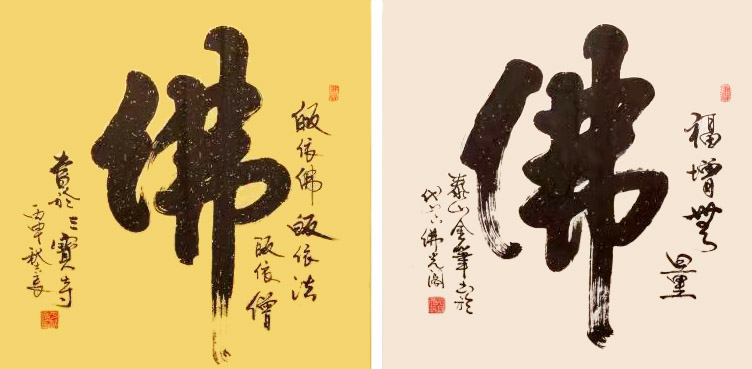 佛
皈依佛
皈依法
皈依僧
於三寶寺
丙申
佛
福增無量
泰山金筆书於
佛光阁